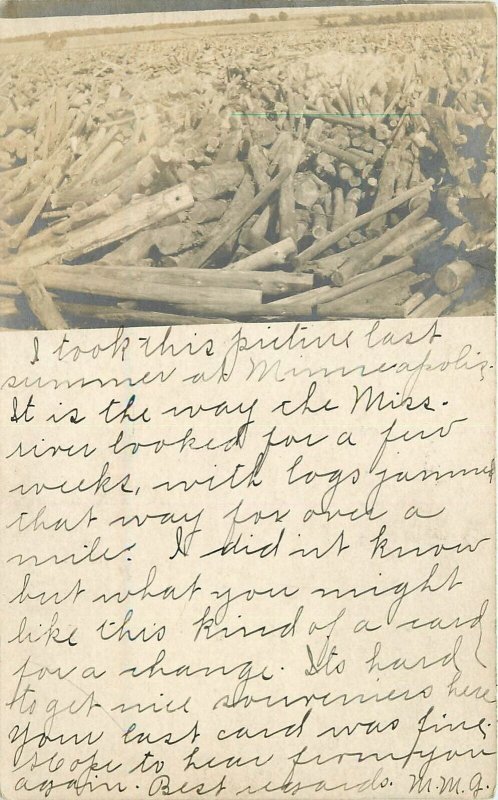 I took this picture last
summer at Minneapolis.
It is the way the Miss.
river looked for a few
weeks, with logs jammed
that way for over a
mile. I did'nt know
but what you might
like this kind of a card
for a change. Its hard
to get nice souveniers here
Your last card was fine.
Hope to hear from you
again. Best regards. M.M.G.